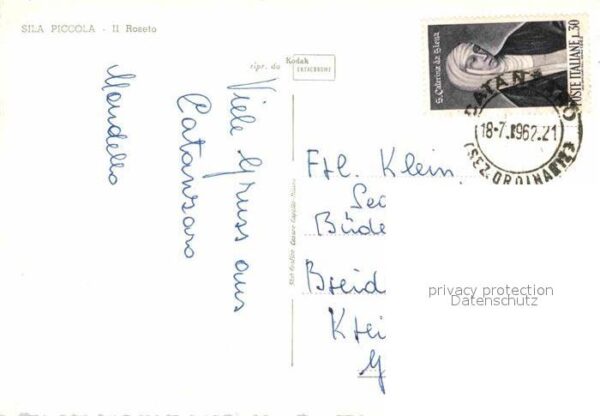 SILA PICCOLA - Il Roseto
ripr. da Kodak
EKTACHROME
Viele Gruss aus
Catanzaro
Mandello
Frl. Klein.
Sec
Büde
Breid
Krei
G
S. Caterina da Siena
POSTE ITALIANE L.30
CATANZ
18-7.1962.21
(SEZ.ORDINARIE)
privacy protection
Datenschutz